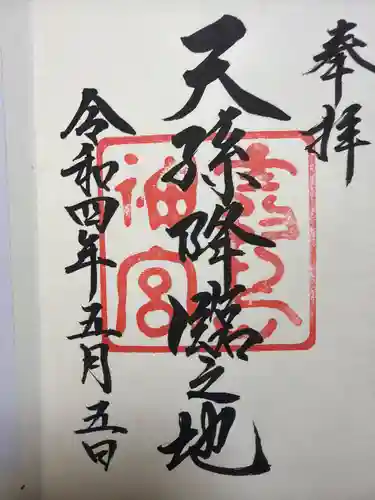 奉拝
天孫降臨之地
霧島
神宮
令和四年五月五日